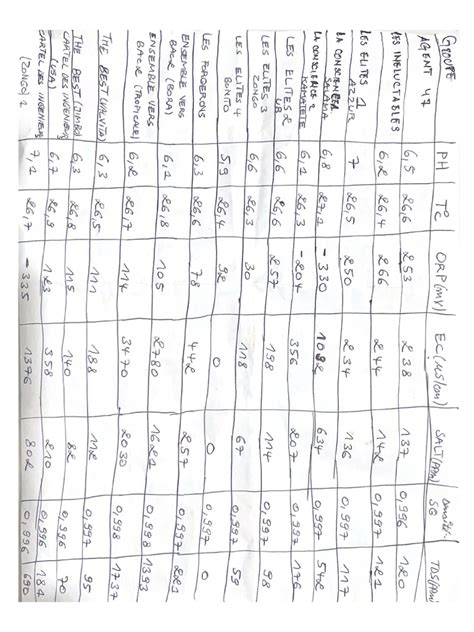 GROUPE PH T°C ORP(mV) EC(µS/cm) SALT(PPM) Densité SG TDS(PPM)
AGENT 47 6,5 26,6 253 238 137 0,996 120
LES INELUCTABLES 6,2 26,4 266 244 142 0,997 121
LES ELITES 1
AZZUR 7 26,5 250 234 136 0,997 117
LA CONSCIENCE
SALAMA 6,8 27,1 -330 1082 634 0,997 542
LA CONSCIENCE 2
KAMATETE 6,1 26,3 -204 356 207 0,997 176
LES ELITES 2
UB 6,6 26,6 63 198 114 0,997 98
LES ELITES 3
ZONGO 6,6 26,3 30 118 67 0,997 59
LES ELITES 4
BONITO 5,9 26,4 92 0 0 0,997 0
LES FORGERONS 6,3 26,6 78 442 257 0,997 221
ENSEMBLE VERS
BACR (BORA) 6,1 26,8 105 2780 1621 0,998 1393
ENSEMBLE VERS
BACR (TROPICALE) 6,2 26,7 114 3470 2030 0,998 1737
THE BEST (UNILUTA) 6,3 26,5 111 188 112 0,997 95
THE BEST (JIMBO) 6,3 26,8 115 140 82 0,997 70
CARTEL DES INGENIEURS
(USA) 6,7 26,9 123 358 210 0,996 181
CARTEL DES INGENIEURS
(ZONGO) 2 7,1 26,7 -335 1376 802 0,996 690